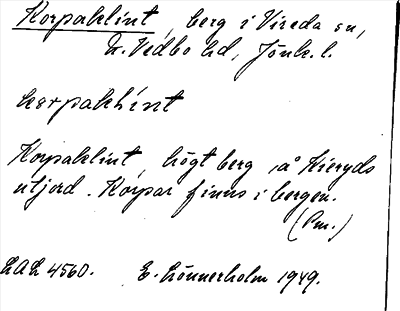 Korpaklint, berg i Vireda sn,
N. Vedbo hd, Jönk. l.
korpaklint
Korpaklint, högt berg å Kieryds
utjord. Korpar finns i bergen.
(Pm.)
4560. E. Lönnerholm 1949.